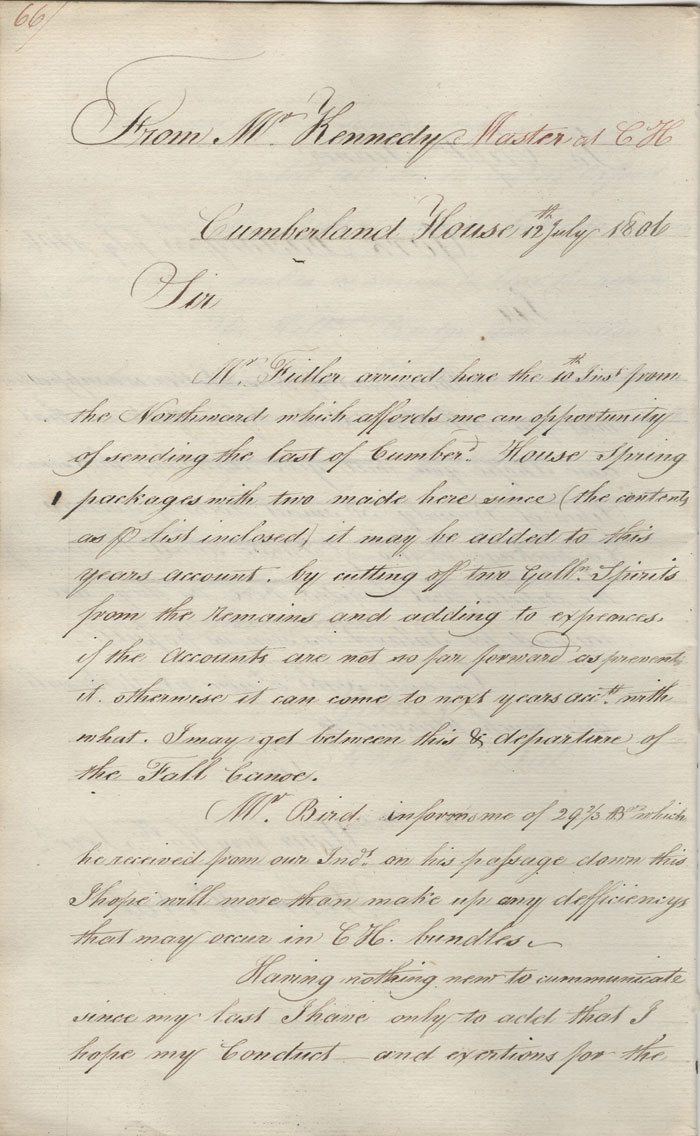 66/
From Mr. Kennedy Master at C H
Cumberland House 12th July 1806
Sir
Mr. Fidler arrived here the 10th Inst from
the Northward which affords me an opportunity
of sending the last of Cumberd. House Spring
packages with two made here since (the contents
as ⅌ list inclosed) it may be added to this
years account. by cutting off two Galln. Spirits
from the Remains and adding to expences.
if the Accounts are not so far forward as prevents
it. otherwise it can come to next years acctt. with
what. I may get between this & departure of
the Fall Canoe.
Mr. Bird informs me of 29 2/3 Br which
he received from our Inds. on his passage down this
I hope will more than make up any defficiencys
that may occur in C H. bundles.
Having nothing new to communicate
since my last I have only to add that I
hope my Conduct and exertions for the